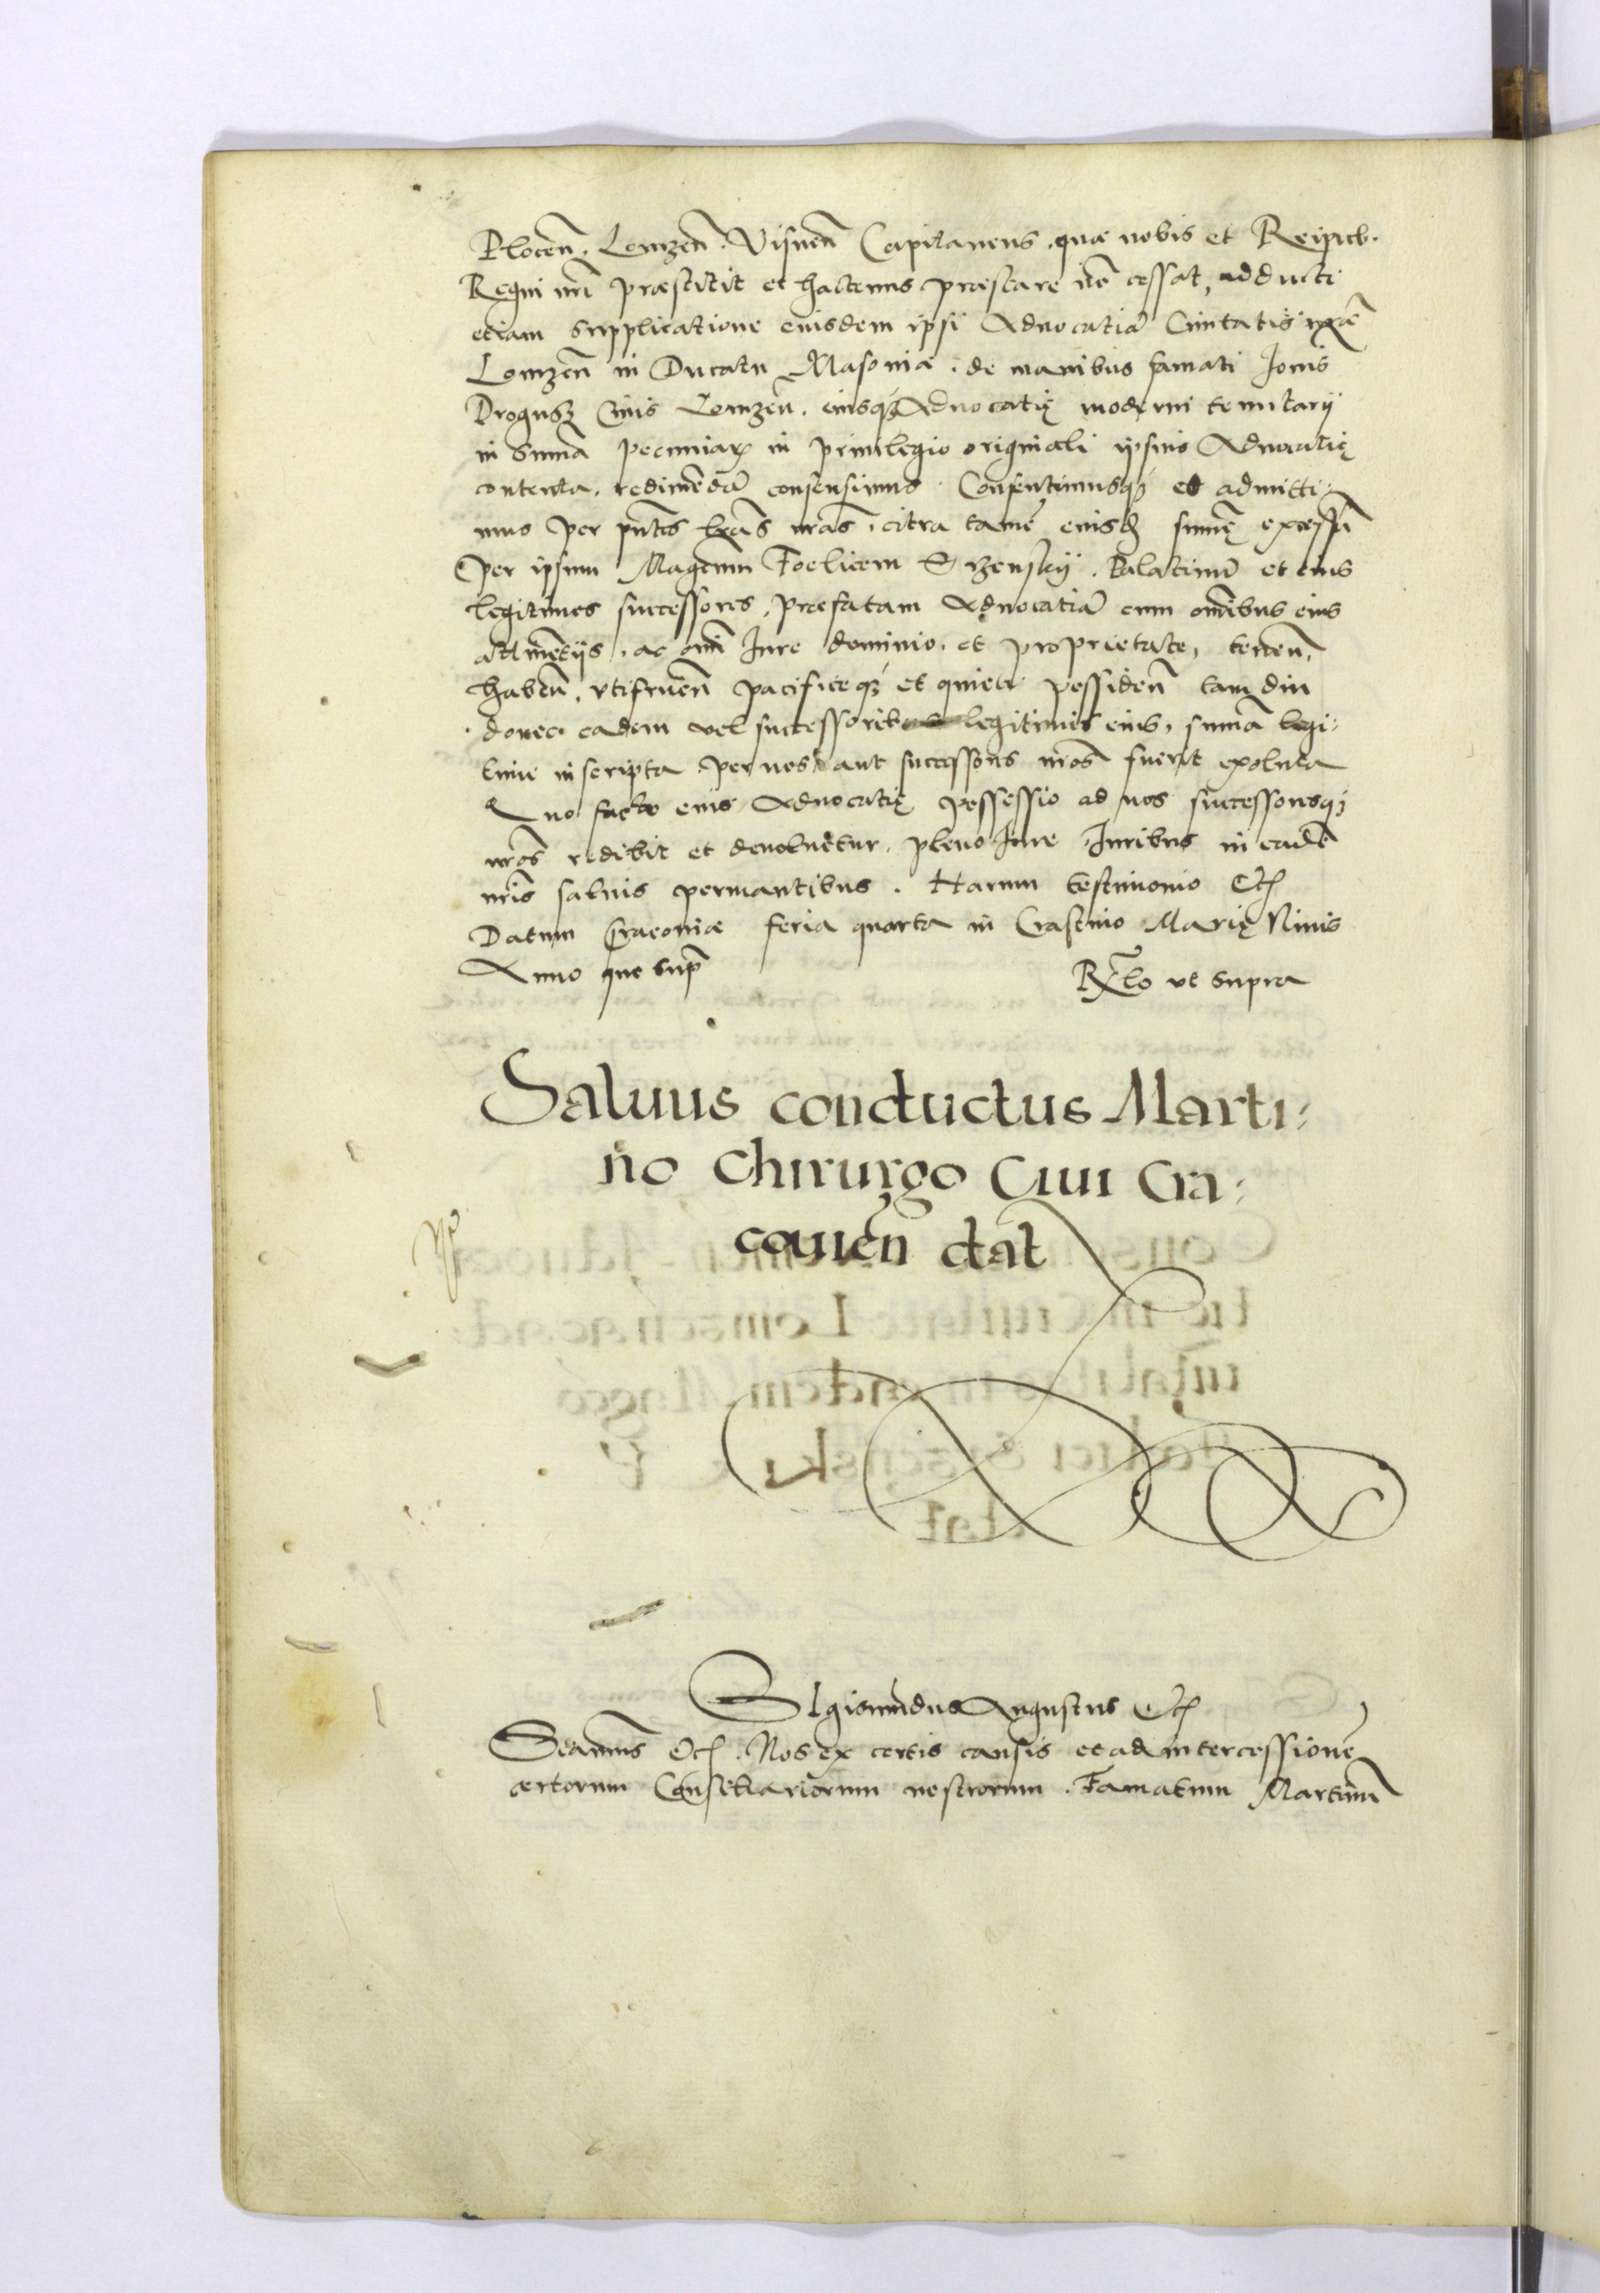 Plocen̄. Lomzen̄. Visnen̄ Capitaneus, quæ nobis et Reipub.
Regni nr̄i præstitit et hactenus præstare nō cessat, adducti
etiam supplicatione eiusdem ipsi Aduocatiā Ciuitatis nr̄æ
Lomzen̄ in Ducatu Masoniæ. de manibus famati Joānis
Drogusz Ciuis Lomzen̄. eiusq; Aduocatię moderni tenutarij
in sum̄a pecuniar̄ in priuilegio originali ipsius Aduocatię
contenta. redimēdā consensimus. Consentimusq; et admitti:
mus per pn̄tes lr̄as nr̄as. citra tamē eiusd sum̄ę excessū
Per ipsum Maḡcum Foelicem Srzenskij. Palatinū et eius
legitimos successores, præfatam Aduocatiā cum omībus eius
attinētijs. ac om̄i Jure dominio. et proprietate, tenen̄,
haben̄, vtifruen̄ pacificeq; et quiete possiden̄ tam diu
donec eadem vel successoribus legitimis eius, sum̄a legi:
time inscripta per nos aut successores nr̄os fuerit exoluta
Quo facto eius Aduocatię possessio ad nos successoresq;
nr̄os redibit et deuoluetur. pleno Jure Juribus in eadē
nr̄is saluis permantibus. Harum testimonio Etc
Datum Cracouiæ feria quarta in Crastino Marię Niuis
Anno quo sup̄
R̄lo vt supra
Saluus conductus Marti:
no Chirurgo Ciui Cra:
couien̄ dat
SIgismūdus Augustus Etc
Significamus Etc. Nos ex certis causis et ad intercessionē
certorum Consiliariorum nostrorum. Famatum Martinū